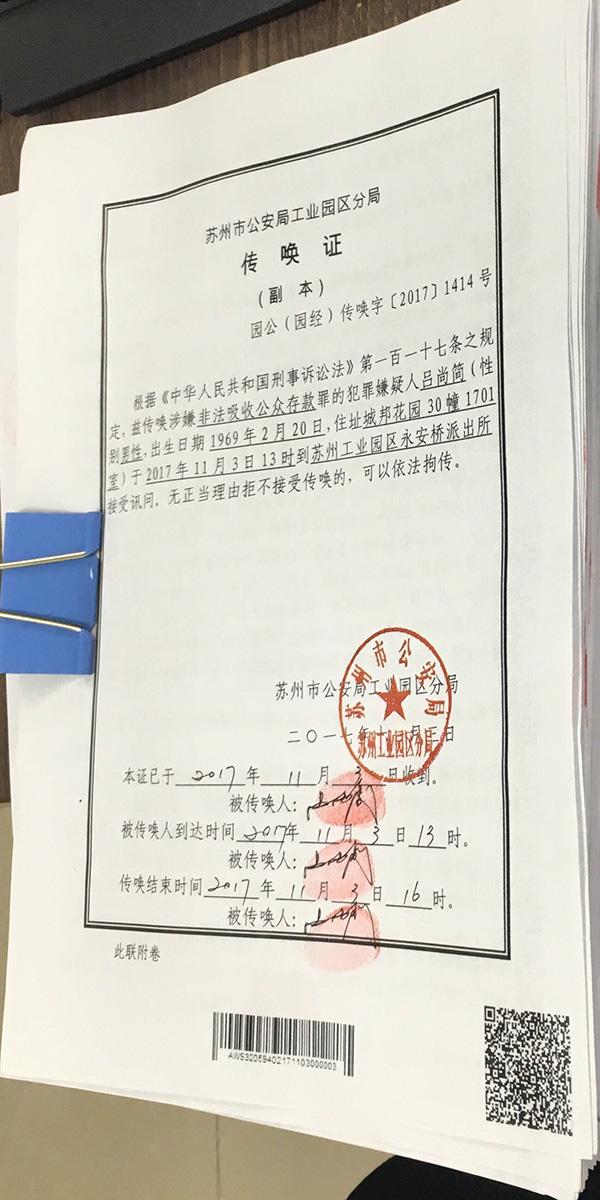 苏州市公安局工业园区分局
传唤证
（副本）
园公（园经）传唤字〔2017〕1414号
根据《中华人民共和国刑事诉讼法》第一百一十七条之规
定，兹传唤涉嫌非法吸收公众存款罪的犯罪嫌疑人吕尚简（性
别男性，出生日期1969年2月20日，住址城邦花园30幢1701
室）于2017年11月3日13时到苏州工业园区永安桥派出所
接受讯问。无正当理由拒不接受传唤的，可以依法拘传。
苏州市公安局工业园区分局
苏州市公安局
苏州工业园区分局
二〇一七年十一月三日
本证已于2017年11月3日收到。
被传唤人：
被传唤人到达时间2017年11月3日13时。
被传唤人：
传唤结束时间2017年11月3日16时。
被传唤人：
此联附卷
AWS3205940217110300003